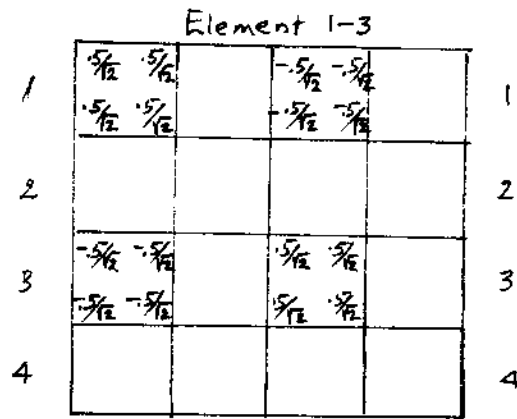 Element 1-3
.5/√2 .5/√2 -.5/√2 -.5/√2
1 1
.5/√2 .5/√2 -.5/√2 -.5/√2
2 2
-.5/√2 -.5/√2 .5/√2 .5/√2
3 3
-.5/√2 -.5/√2 .5/√2 .5/√2
4 4